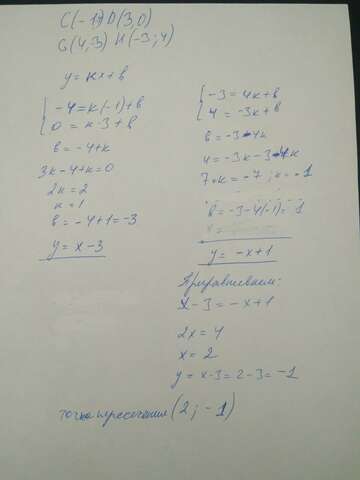 C(-1 D(3,0)
G(4,3) H(-3;4)
y = kx + b
-4 = k(-1) + b
0 = k·3 + b
b = -4 + k
3k - 4 + k = 0
2k = 2
k = 1
b = -4 + 1 = -3
y = x - 3
-3 = 4k + b
4 = -3k + b
b = -3 - 4k
4 = -3k - 3 - 4k
7·k = -7; k = -1
b = -3 - 4(-1) = 1
y = -x + 1
Приравниваем:
x - 3 = -x + 1
2x = 4
x = 2
y = x - 3 = 2 - 3 = -1
точка пересечения (2; -1)